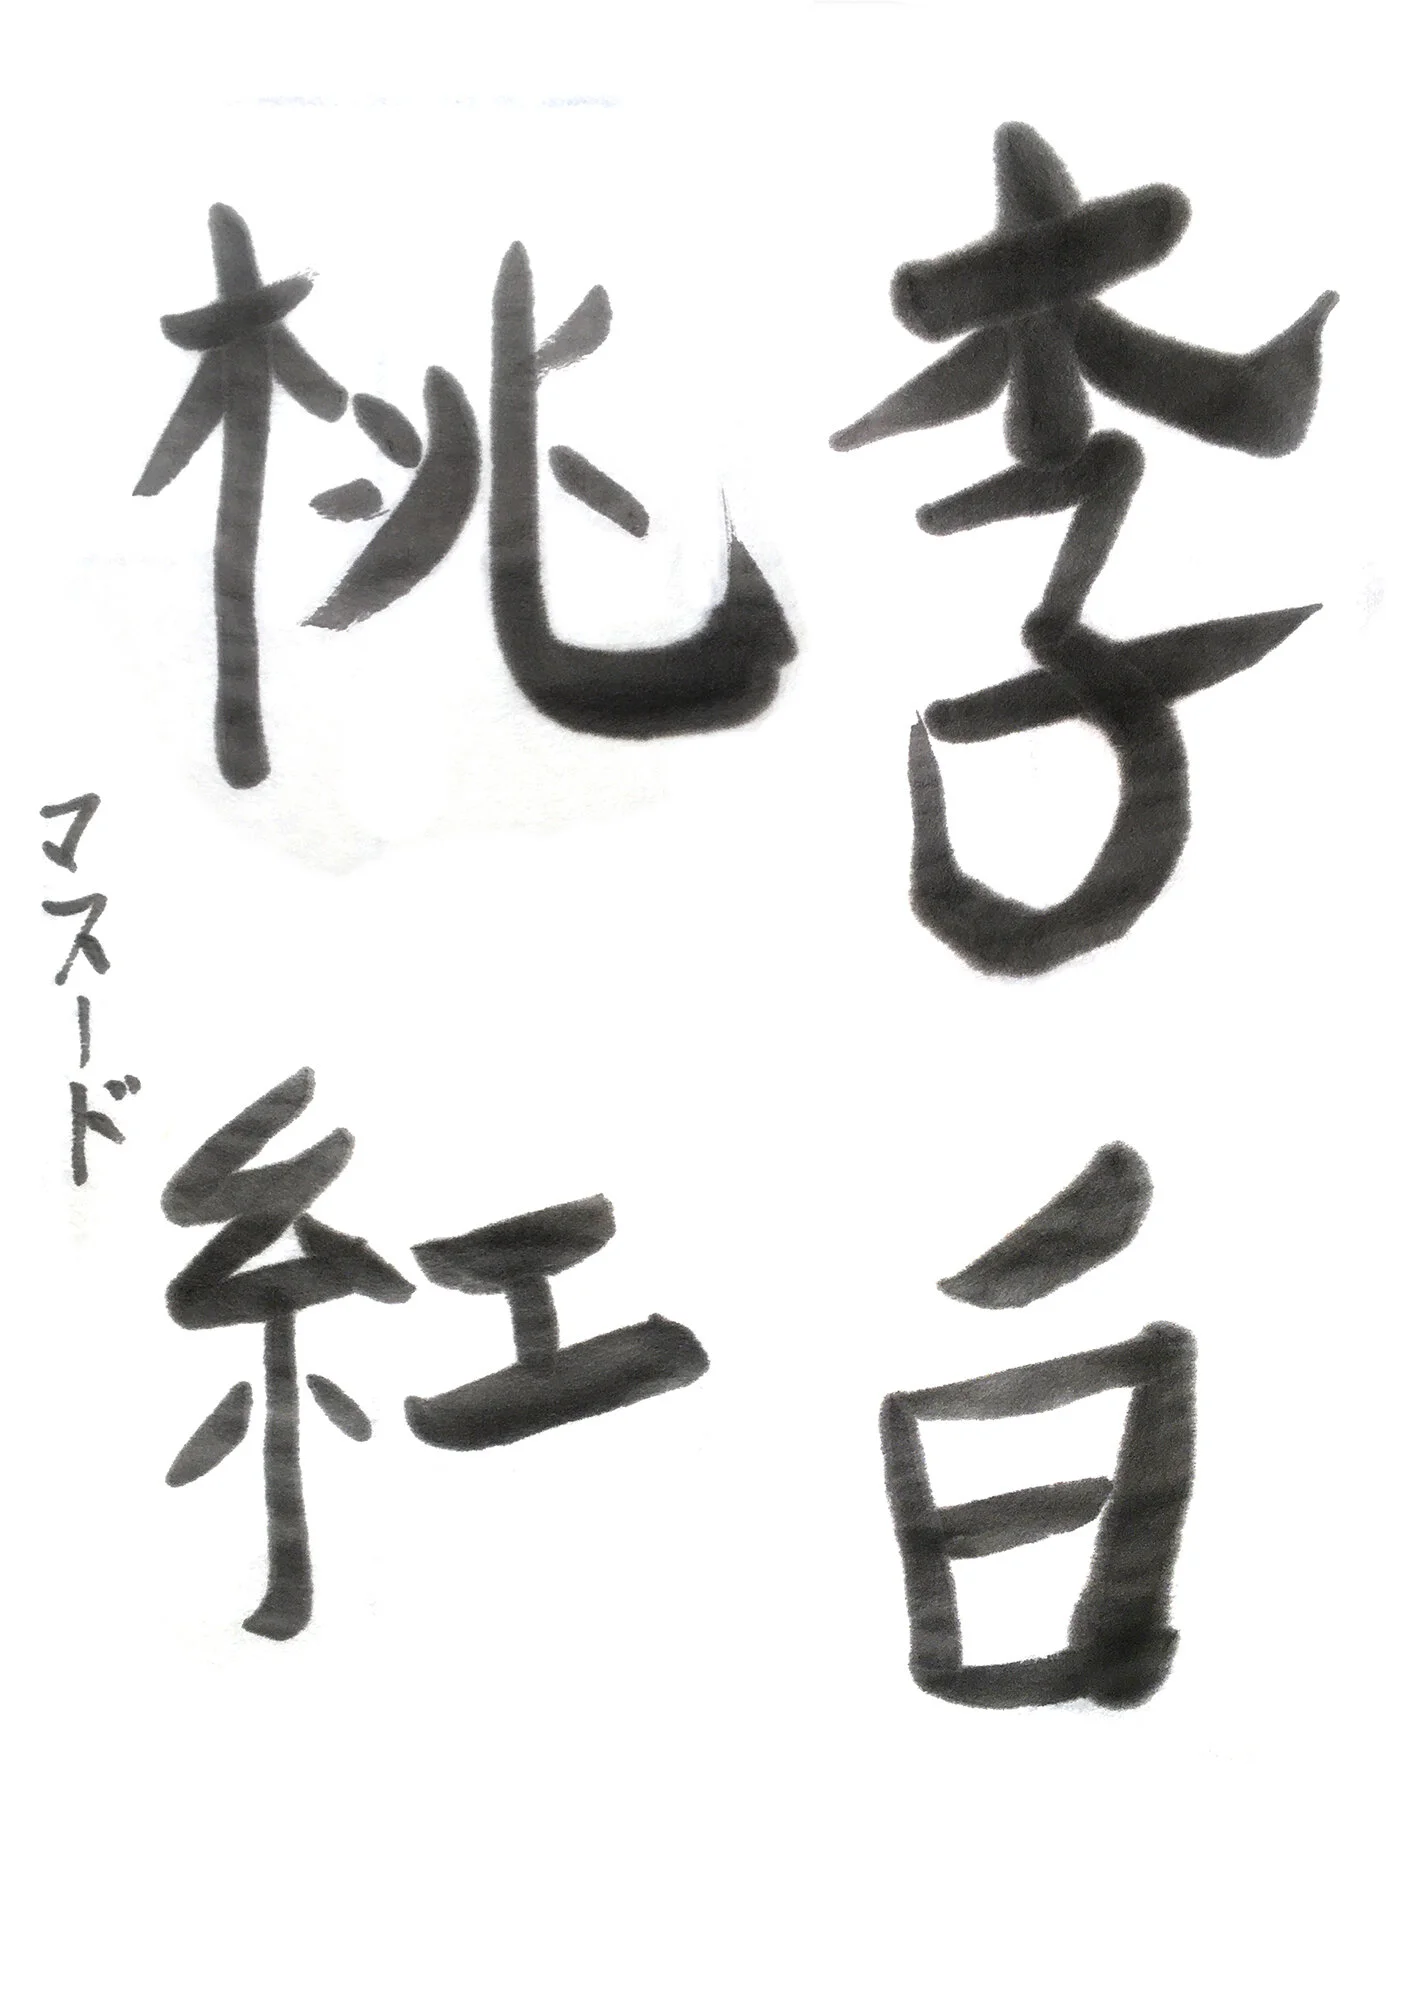 李白
桃紅
マスード